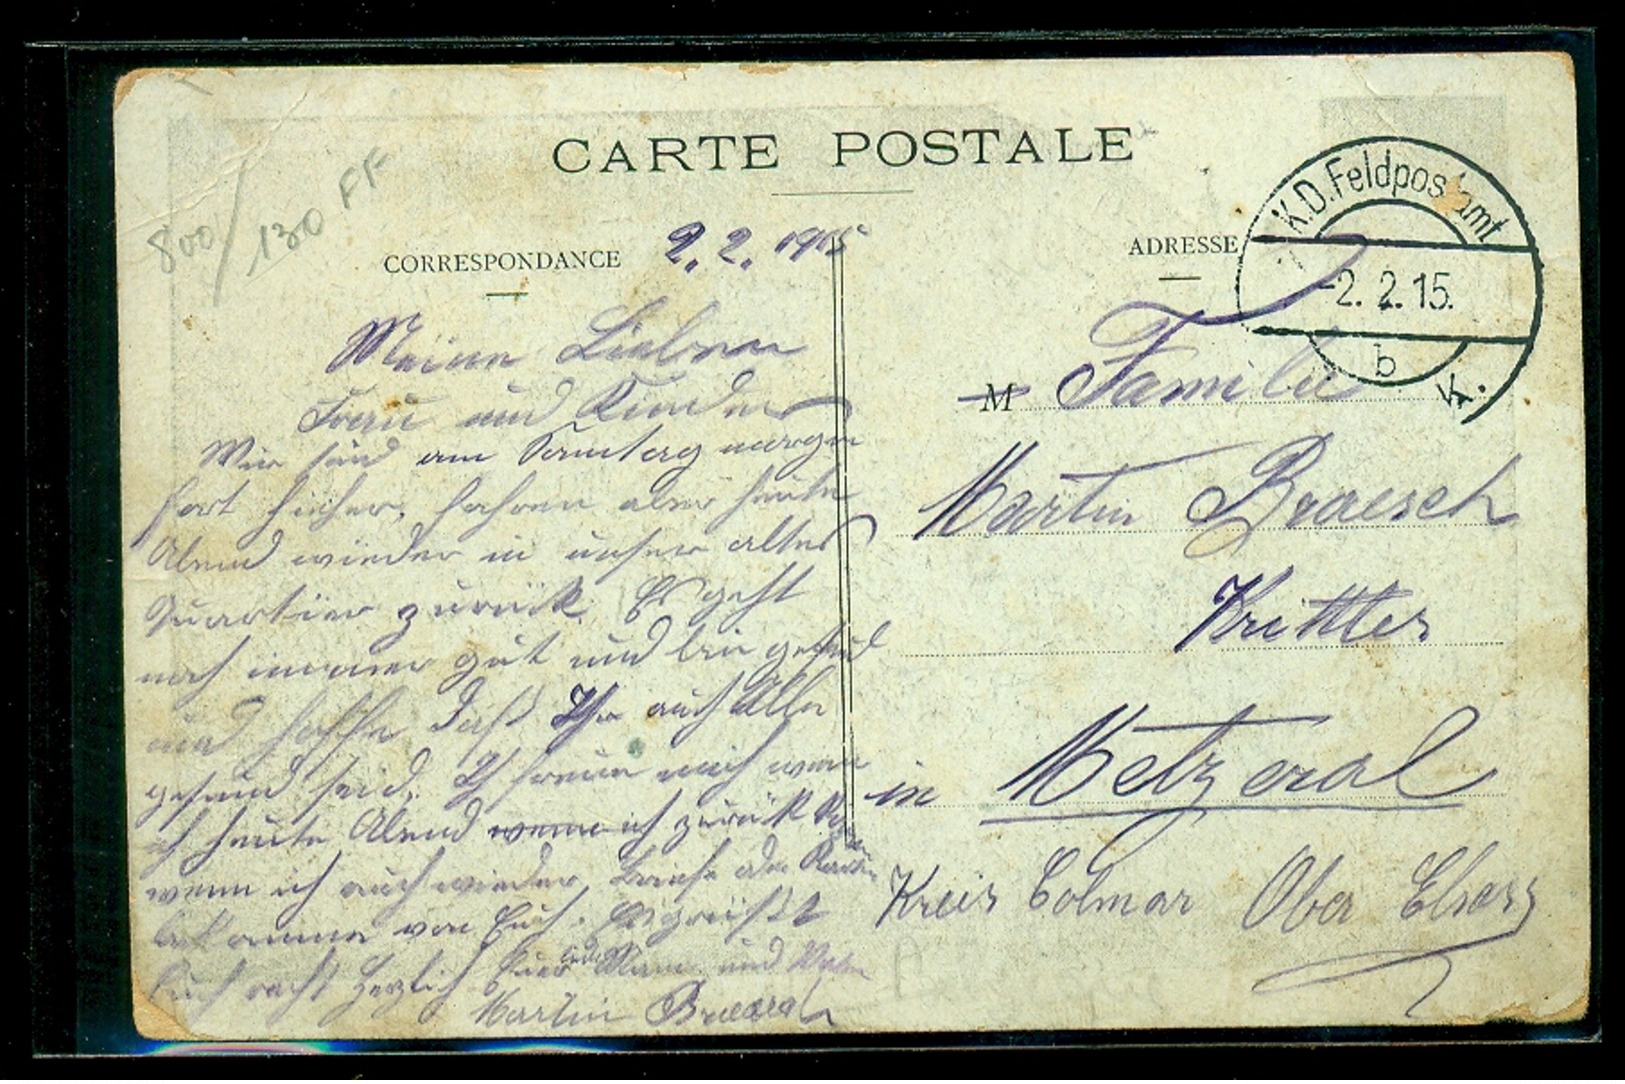 CARTE POSTALE
800/130 FF
CORRESPONDANCE
2. 2. 1915
Meine Lieben
Frau und Kinder
Wir sind am Samstag morgen
fort hieher, fahren aber heute
Abend wieder in unser altes
Quartier zurück. Es geht
noch immer gut und bin gesund
und hoffe daß Ihr auch Alle
gesund seid. Ich freue mich wenn
ich heute Abend wenn ich zurück
wenn ich auch wieder Briefe oder Karten
bekomme von Euch. Es grüßt
Euch recht herzlich Euer Mann und Vater
Martin Braesch
ADRESSE
K.D. Feldpostamt
-2. 2. 15.
b
K.
M Familie
Martin Braesch
Kritter
in Metzeral
Kreis Colmar Ober Elsass